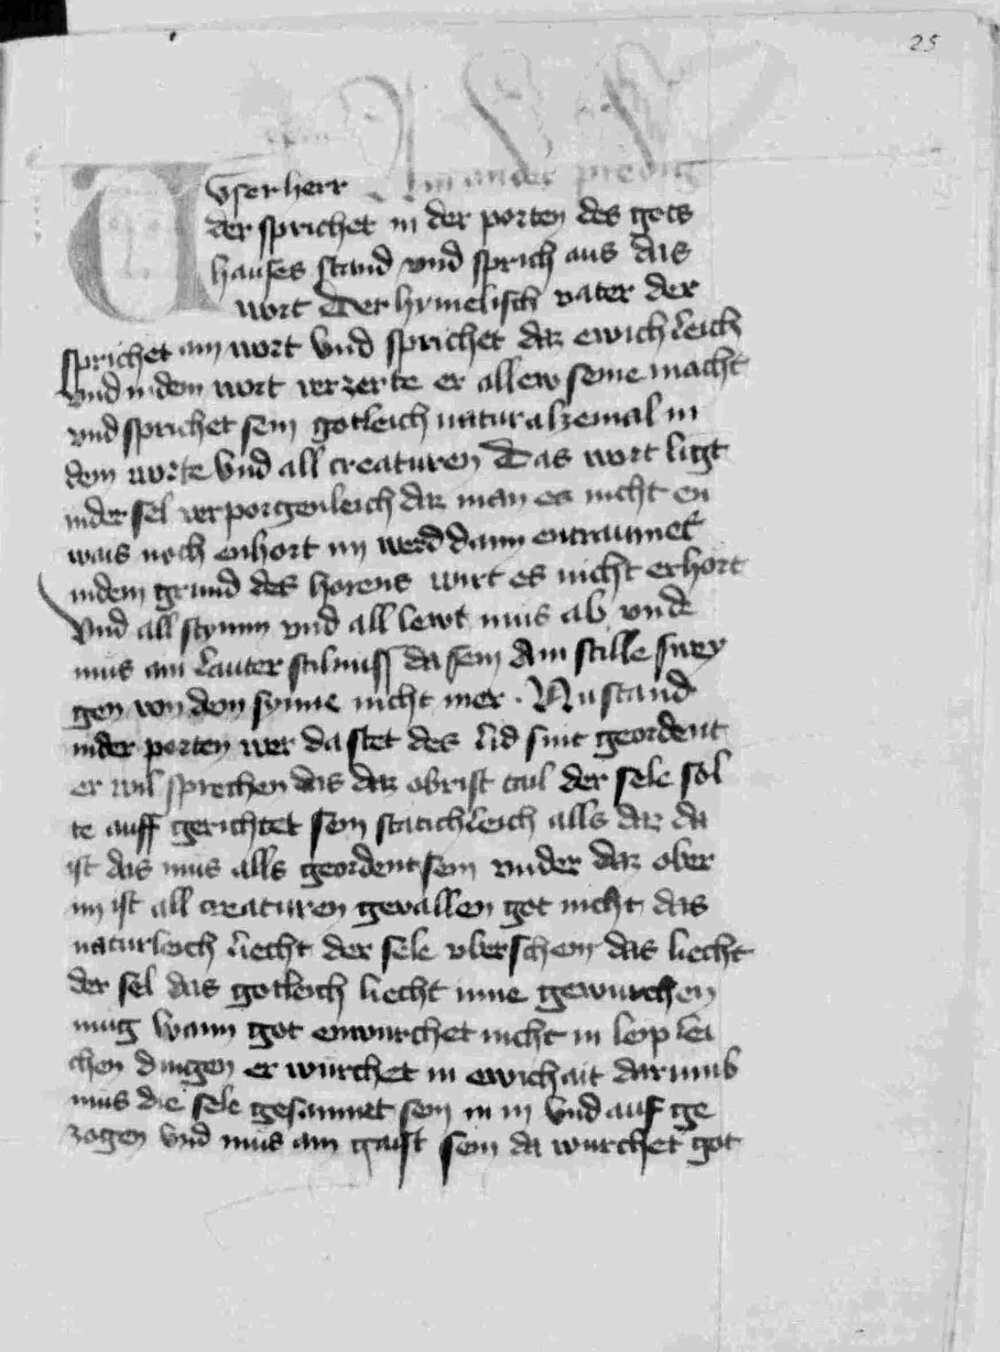 25
Ain ander predig
Vnser herr
der sprichet in der porten des gots
hauses stand vnd sprich aus das
wort Der hymelisch vater der
sprichet ain wort vnd sprichet daz ewichleich
vnd in dem wort verzerte er allew seine macht
vnd sprichet sein gotleich natur alzemal in
dem worte vnd all creaturen Das wort ligt
in der sel verporgenleich daz man es nicht en
wais noch enhort im werd dann entraumet
in dem grund des horens wirt es nicht erhort
vnd all stymm vnd all lewt mus ab vnde
mus ain lauter stilnuss da sein Ain stille swey
gen von dem synne nicht mer . Nu stand
in der porten wer da stet des lid sint geordent
er wil sprechen das daz obrist tail der sele sol
te auff gerichtet sein staticleich alls daz da
ist das mus alls geordent sein vnder daz ober
im ist all creaturen gevallen got nicht das
naturleich liecht der sele vberschein das liecht
der sel das gotleich liecht inne gewurchen
mug wann got enwurchet nicht in leiplei
chen dingen er wurchet in ewichait darumb
mus die sele gesamnet sein in in vnd auf ge
zogen vnd mus ain gaist sein da wurchet got